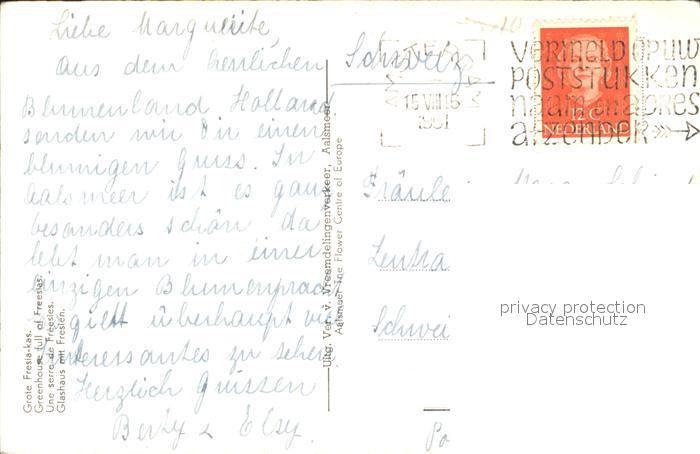 Liebe Marguerite,
aus dem herrlichen
Blumenland Holland
senden wir Dir einen
blumigen Gruss. In
Aalsmeer ist es ganz
besonders schön da
lebt man in einer
einzigen Blumenprac
giebt überhaupt vi
interessantes zu sehen
Herzlich Grüssen
Berty & Elsy.
Grote Fresia-kas.
Greenhouse full of Freesias.
Une serre de Freesies.
Glashaus mit Fresien.
Uitg. Ver. v. Vreemdelingenverkeer, Aalsmeer
Aalsmeer The Flower Centre of Europe
Schweiz
AMSTERDAM
15 VIII 15
1951
VERMELD OP UW
POSTSTUKKEN
naam en adres
afzender
12 C
NEDERLAND
Fräule
Zentra
Schwei
privacy protection
Datenschutz